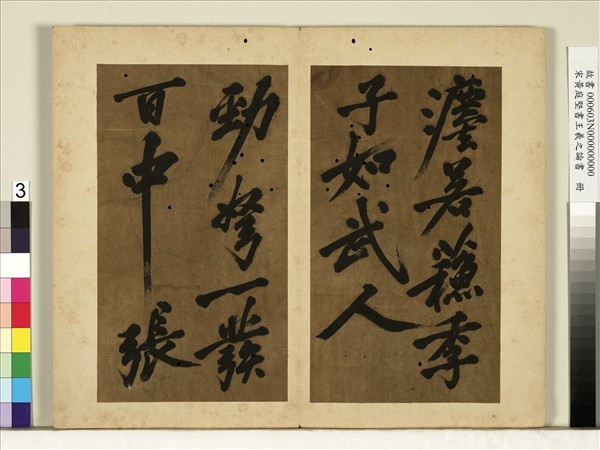 故書 000603N000000000
宋黃庭堅書王羲之論書 冊
若蘓季
子如武人
勁弩一發
百中 張
3